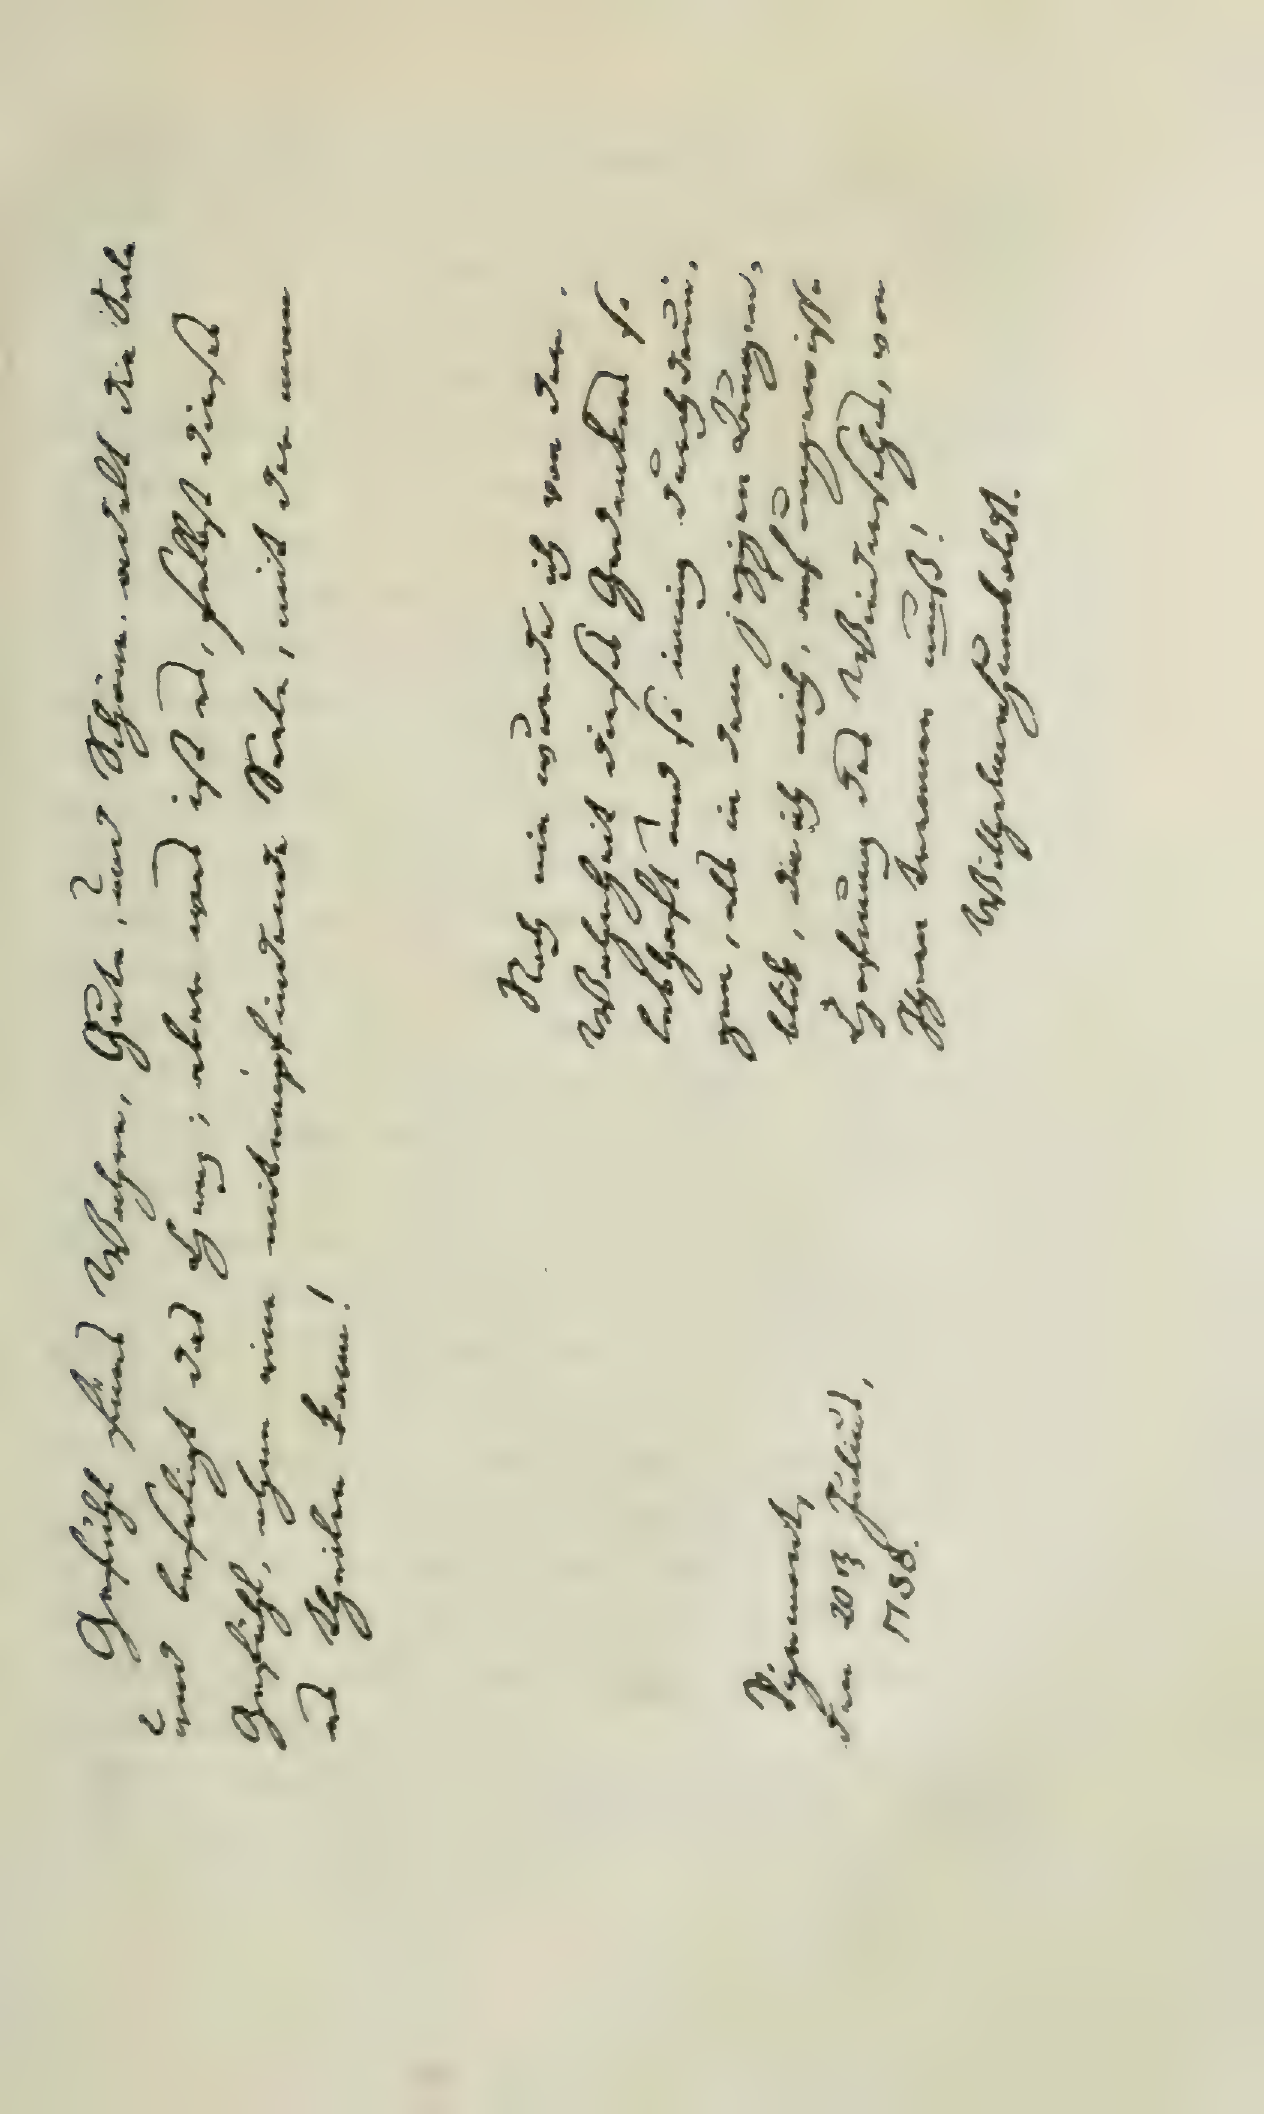 Gefühl fürs Wahre, Gute, und Schöne adelt die Seele
und beseligt das Herz; aber was ist es, selbst dieses
Gefühl, ohne eine mitempfindende Seele, mit der man
es theilen kann!
Noch nie wurde ich von der
Wahrheit dieses Gedankens so
lebhaft und so innig durchdrun-
gen, als in dem jezigen Augen-
blik, da ich mich, auf ungewisse
Hofnung des Wiedersehens, von
Ihnen trennen muß!
Wilhelm von Humboldt.
Pyrmont,
den 20t Julius,
1788.